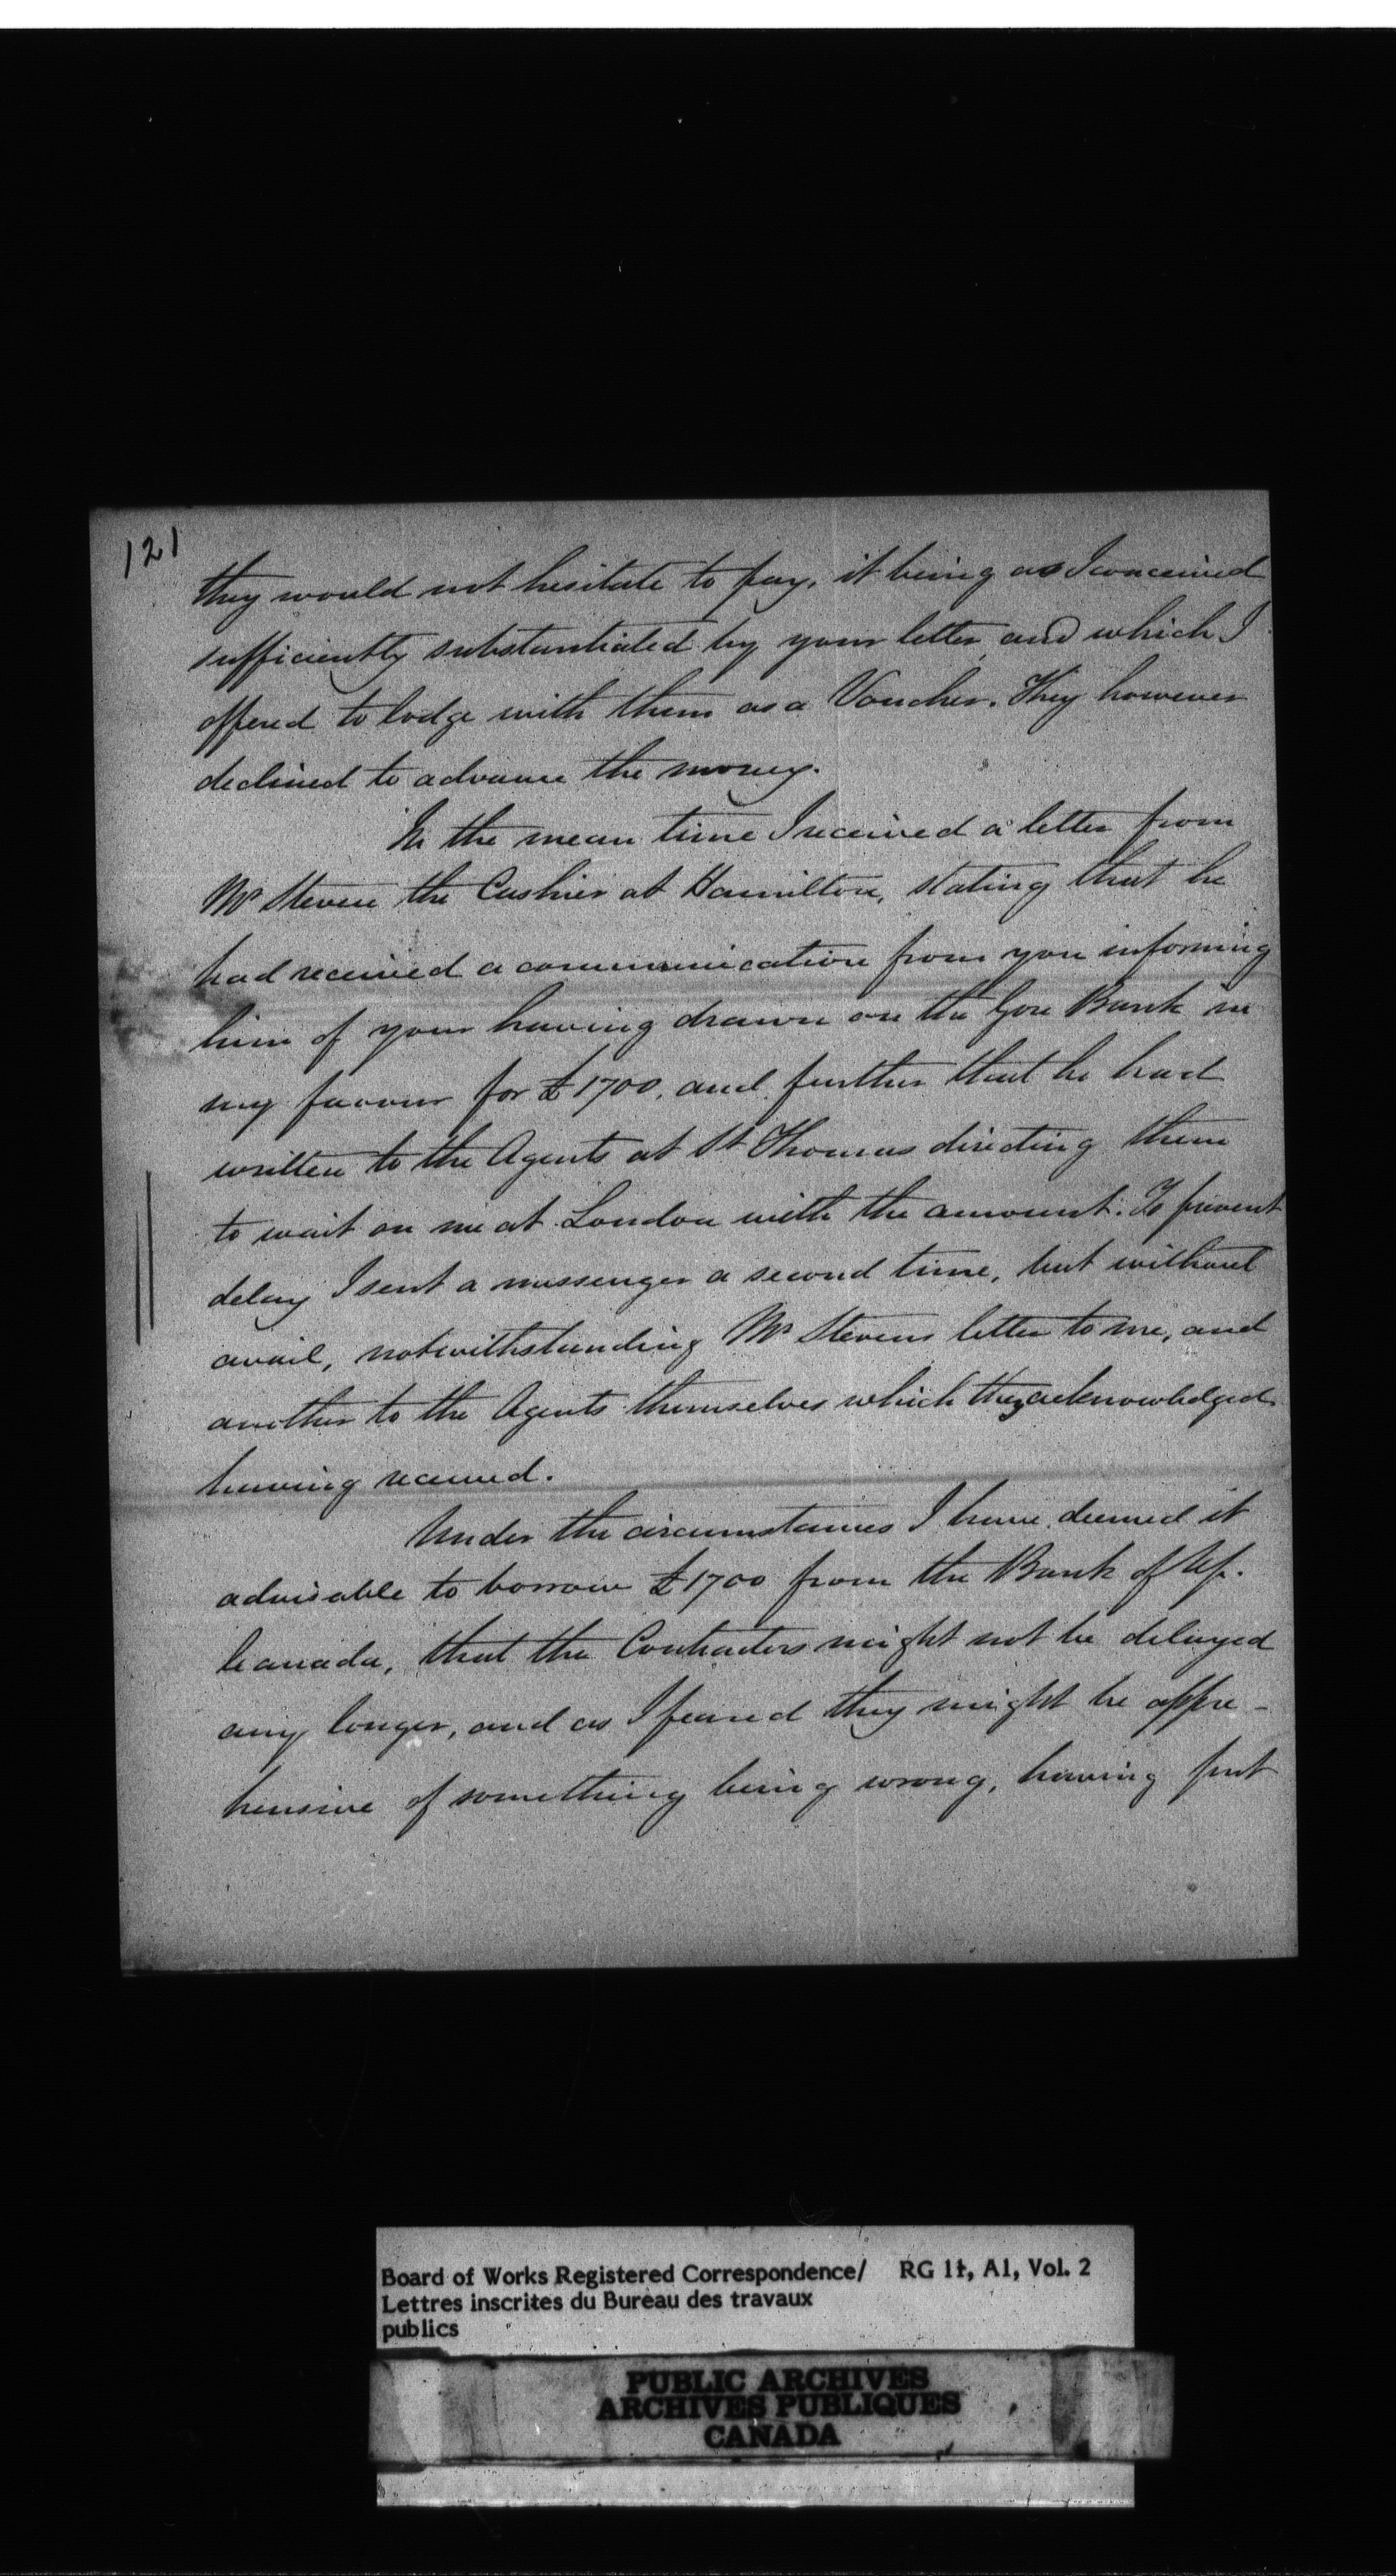 121
they would not hesitate to pay, it being as I conceived
sufficiently substantiated by your letter and which I
offered to lodge with them as a Voucher. They however
declined to advance the money.
In the mean time I received a letter from
Mr Steven the Cashier at Hamilton, stating that he
had received a communication from you informing
him of your having drawn on the Gore Bank in
my favour for £1700, and further that he had
written to the Agents at St Thomas directing them
to wait on me at London with the amount. To prevent
delay I sent a messenger a second time, but without
avail, notwithstanding Mr Stevens letter to me, and
another to the Agents themselves which they acknowledged
having received.
Under the circumstances I have deemed it
advisable to borrow £1700 from the Bank of Up.
Canada, that the Contractors might not be delayed
any longer, and as I feared they might be appre-
hensive of something being wrong, having put
Board of Works Registered Correspondence/ RG 11, A1, Vol. 2
Lettres inscrites du Bureau des travaux
publics
PUBLIC ARCHIVES
ARCHIVES PUBLIQUES
CANADA